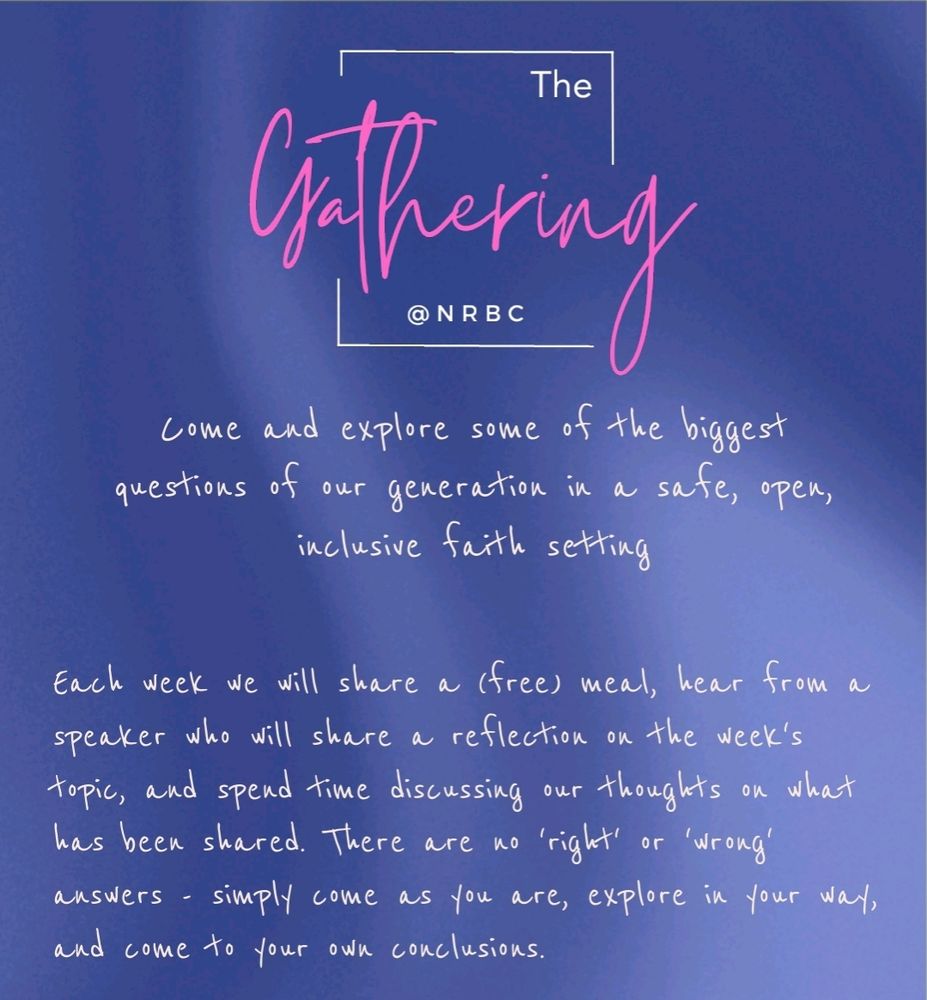 The
Gathering
@NRBC
Come and explore some of the biggest
questions of our generation in a safe, open,
inclusive faith setting
Each week we will share a (free) meal, hear from a
speaker who will share a reflection on the week's
topic, and spend time discussing our thoughts on what
has been shared. There are no 'right' or 'wrong'
answers - simply come as you are, explore in your way,
and come to your own conclusions.